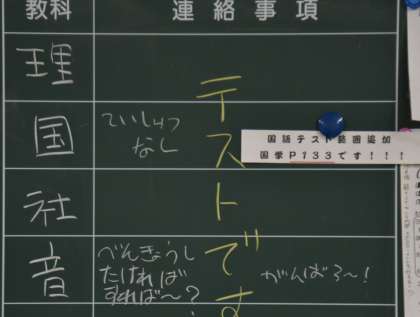 教科 連絡事項
理
国 ていしゅつ
なし
社
音 べんきょうし
たければ
すれば〜?
がんばろ〜!
テストです
国語テスト範囲追加
国学P133です!!!